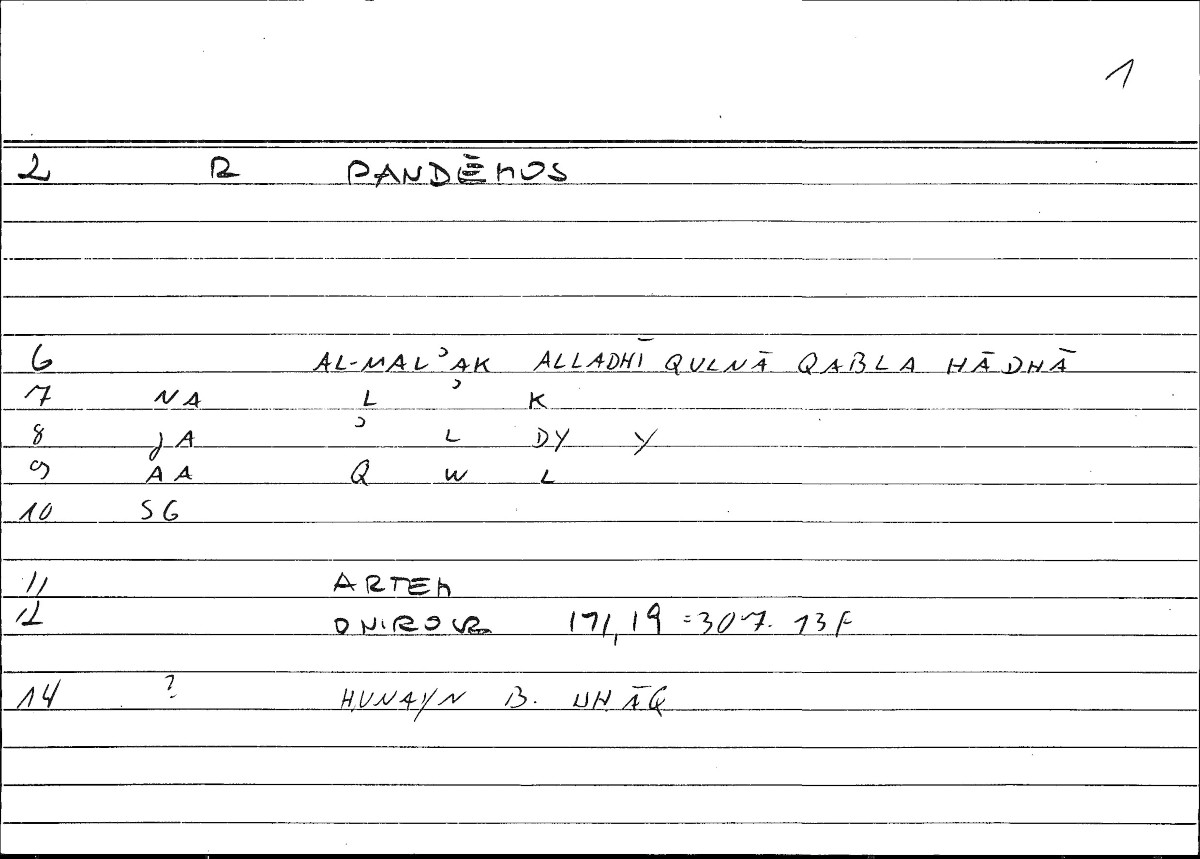 1
2 R PANDĒMOS
6 AL-MALʾAK ALLADHĪ QULNĀ QABLA HĀDHĀ
7 NA L ʾ K
8 JA ʾ L DY Y
9 AA Q W L
10 SG
11 ARTEM
12 ONIROCR 171,19 = 307. 13F
14 ? HUNAYN B. ISHĀQ